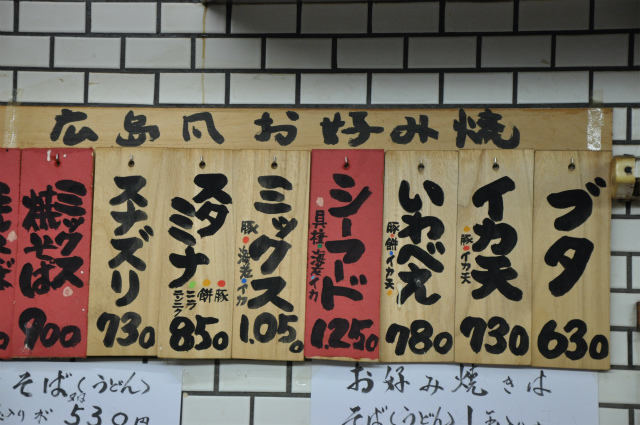 広島風お好み焼
ブタ
630
イカ天
豚・イカ天
730
いわべえ
豚・餅・イカ天
780
シーフード
貝柱・海老・イカ
1.250
ミックス
豚・海老・イカ
1.050
スタミナ
豚・餅・ニラ・ニンニク
850
スナズリ
730
ミックス
焼そば
900
お好み焼きは
そば(うどん)1玉入り
そば(うどん)
530円